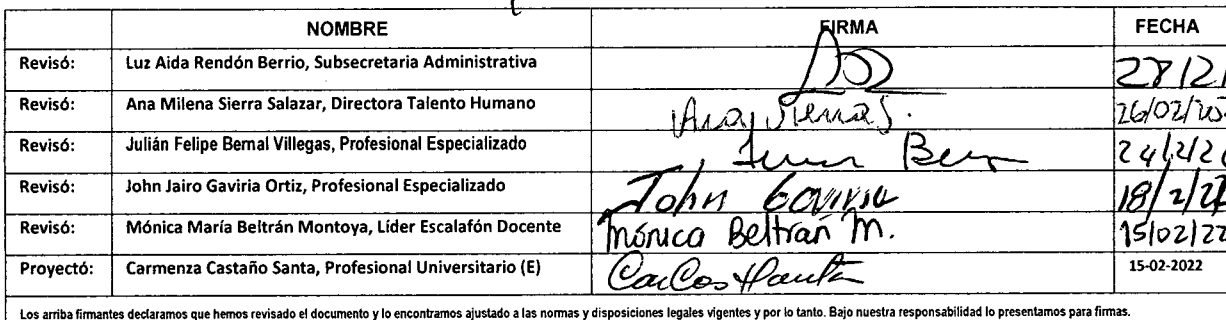 NOMBRE FIRMA FECHA
Revisó: Luz Aida Rendón Berrio, Subsecretaria Administrativa
Revisó: Ana Milena Sierra Salazar, Directora Talento Humano Ana Sierra S. 26/02/202
Revisó: Julián Felipe Bernal Villegas, Profesional Especializado
Revisó: John Jairo Gaviria Ortiz, Profesional Especializado John Gaviria 18/2/22
Revisó: Mónica María Beltrán Montoya, Líder Escalafón Docente Mónica Beltrán M. 15/02/22
Proyectó: Carmenza Castaño Santa, Profesional Universitario (E) 15-02-2022
Los arriba firmantes declaramos que hemos revisado el documento y lo encontramos ajustado a las normas y disposiciones legales vigentes y por lo tanto. Bajo nuestra responsabilidad lo presentamos para firmas.